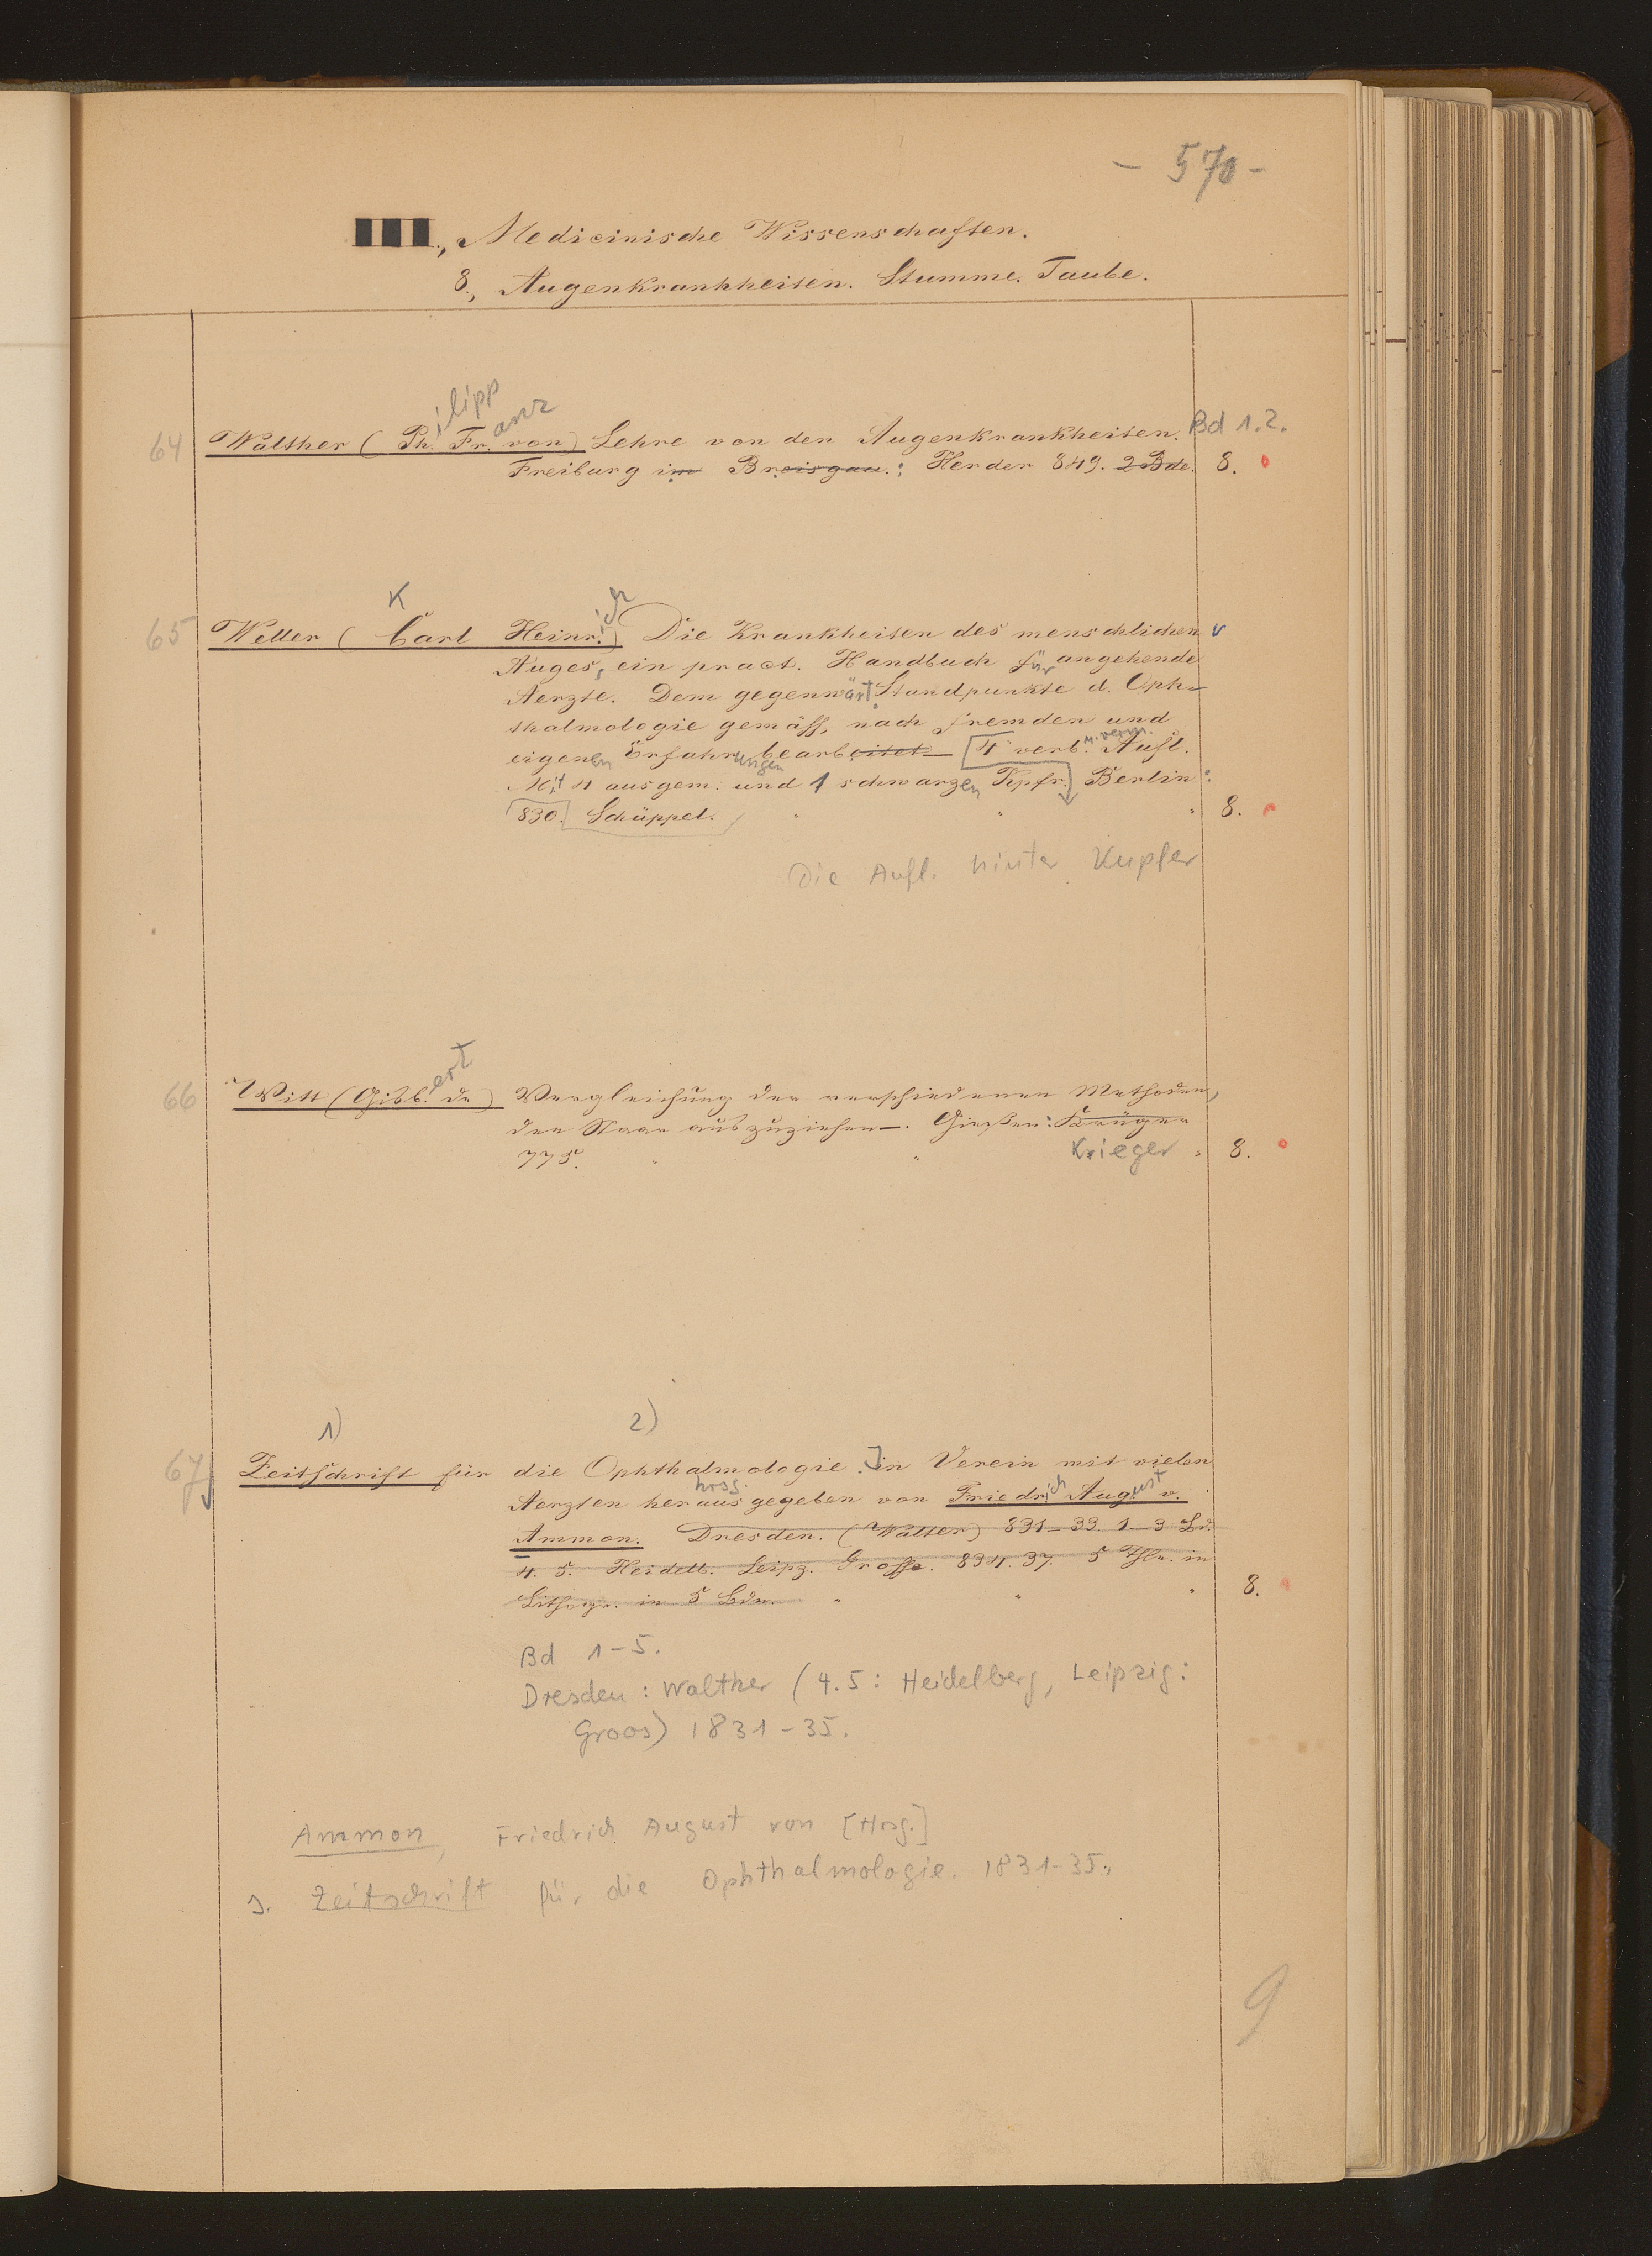 - 570 -
III., Medicinische Wissenschaften.
8., Augenkrankheiten. Stumme. Taube.
ilipp anz
64 Walther (Ph. Fr. von) Lehre von den Augenkrankheiten. Bd 1.2.
Freiburg im Breisgau.: Herder 849. 2 Bde. 8.
K ich
65 Weller (Carl Heinr.) Die Krankheiten des menschlichen v
Auges, ein pract. Handbuch für angehende
Aerzte. Dem gegenwärt. Standpunkte d. Oph-
thalmologie gemäss, nach fremden und
eigenen Erfahrungen bearbeitet [4 verb. u. verm. Aufl.
Mit 4 ausgem. und 1 schwarzen Kpfr.] Berlin:
830. Schüppel. 8.
Die Aufl. hinter Kupfer
ert
66 Witt (Gisb. de) Vergleichung der verschiedenen Methoden,
den Staar auszuziehen. Gießen: Krüger
775. Krieger 8.
1) 2)
67 Zeitschrift für die Ophthalmologie.] in Verein mit vielen
Aerzten herausgegeben hrsg. von Friedrich August v.
Ammon. Dresden. (Walter) 831-33. 1-3 Bd.
4. 5. Heidelb. Leipz. Grosse. 834. 37. 5 Thle. in
Lithogr. in 5 Bdn. 8.
Bd 1-5.
Dresden: Walther (4.5: Heidelberg, Leipzig:
Groos) 1831-35.
Ammon, Friedrich August von [Hrsg.]
s. Zeitschrift für die Ophthalmologie. 1831-35.
9